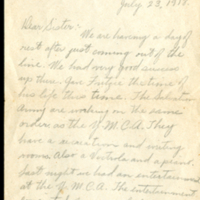 July 22, 1918.
Dear Sister:-
We are having a day of
rest after just coming out of the
line. We had very good success
up this time Fritzie the time of
his life this time. The Salvation
Army are working on the same
order as the Y.M.C.A. They
have a recreation and writing
rooms. Also a Victrola and a piano.
Last night we had an entertainment
at the Y.M.C.A. The entertainment